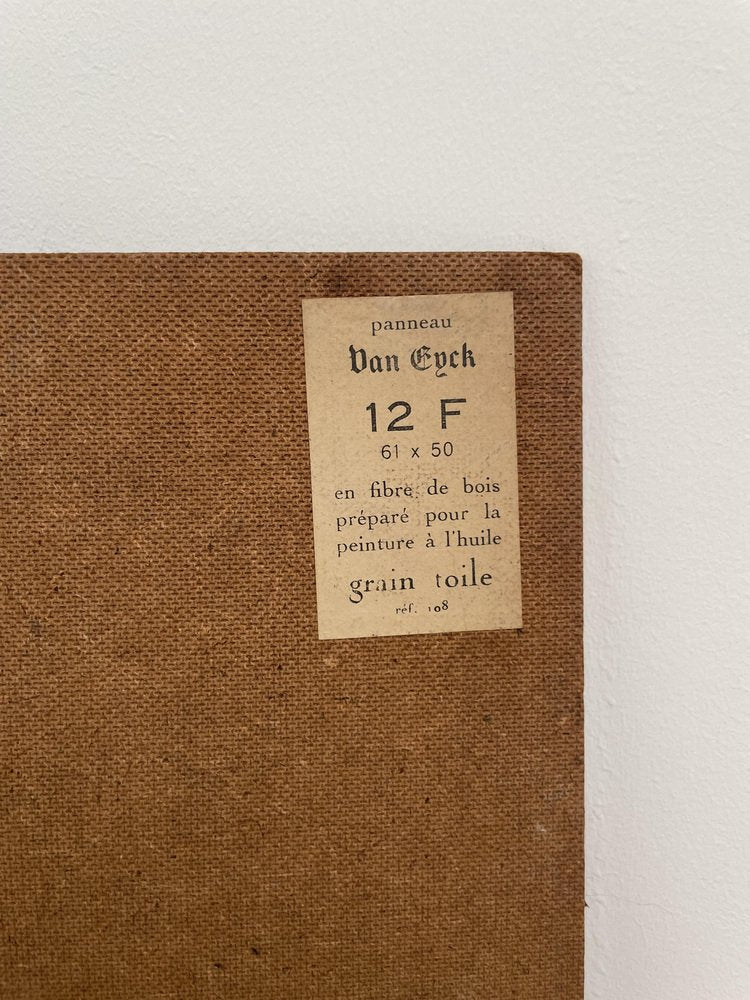 panneau
Van Eyck
12 F
61 x 50
en fibre de bois
préparé pour la
peinture à l'huile
grain toile
réf. 108